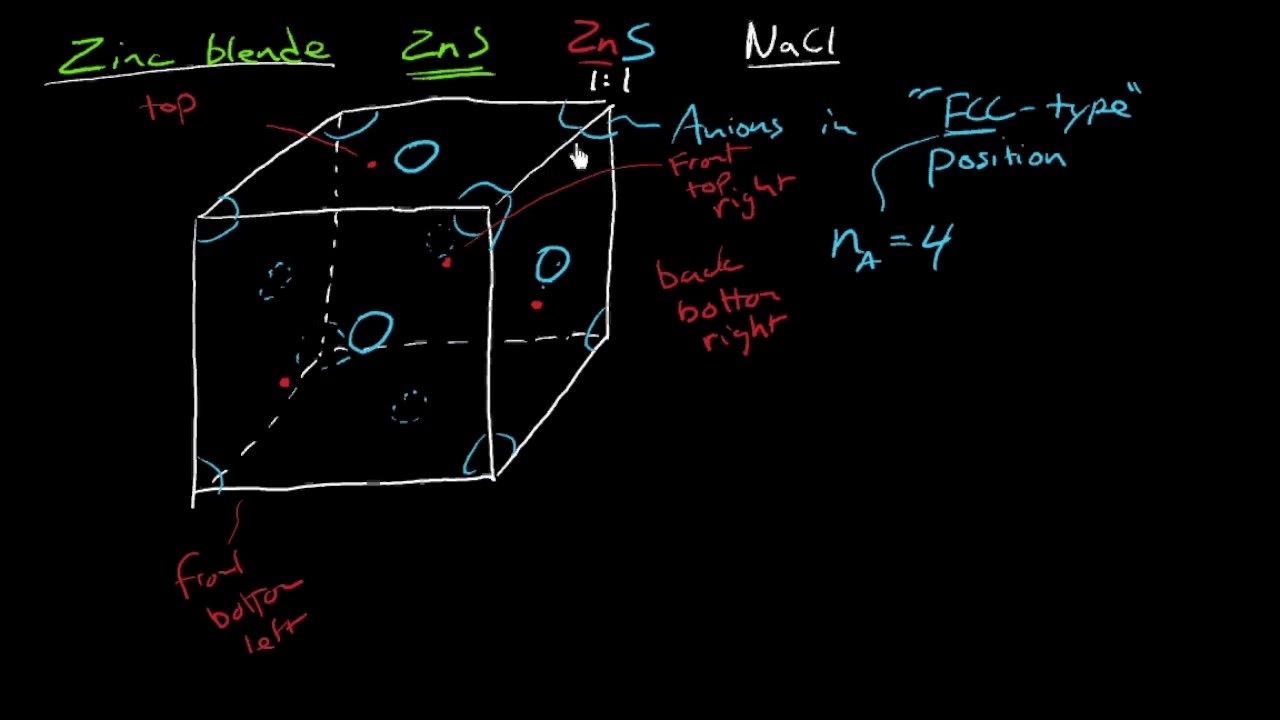 Zinc blende
ZnS
ZnS
1:1
NaCl
top
Anions in "FCC-type"
position
Front
top
right
nA = 4
back
bottom
right
front
bottom
left